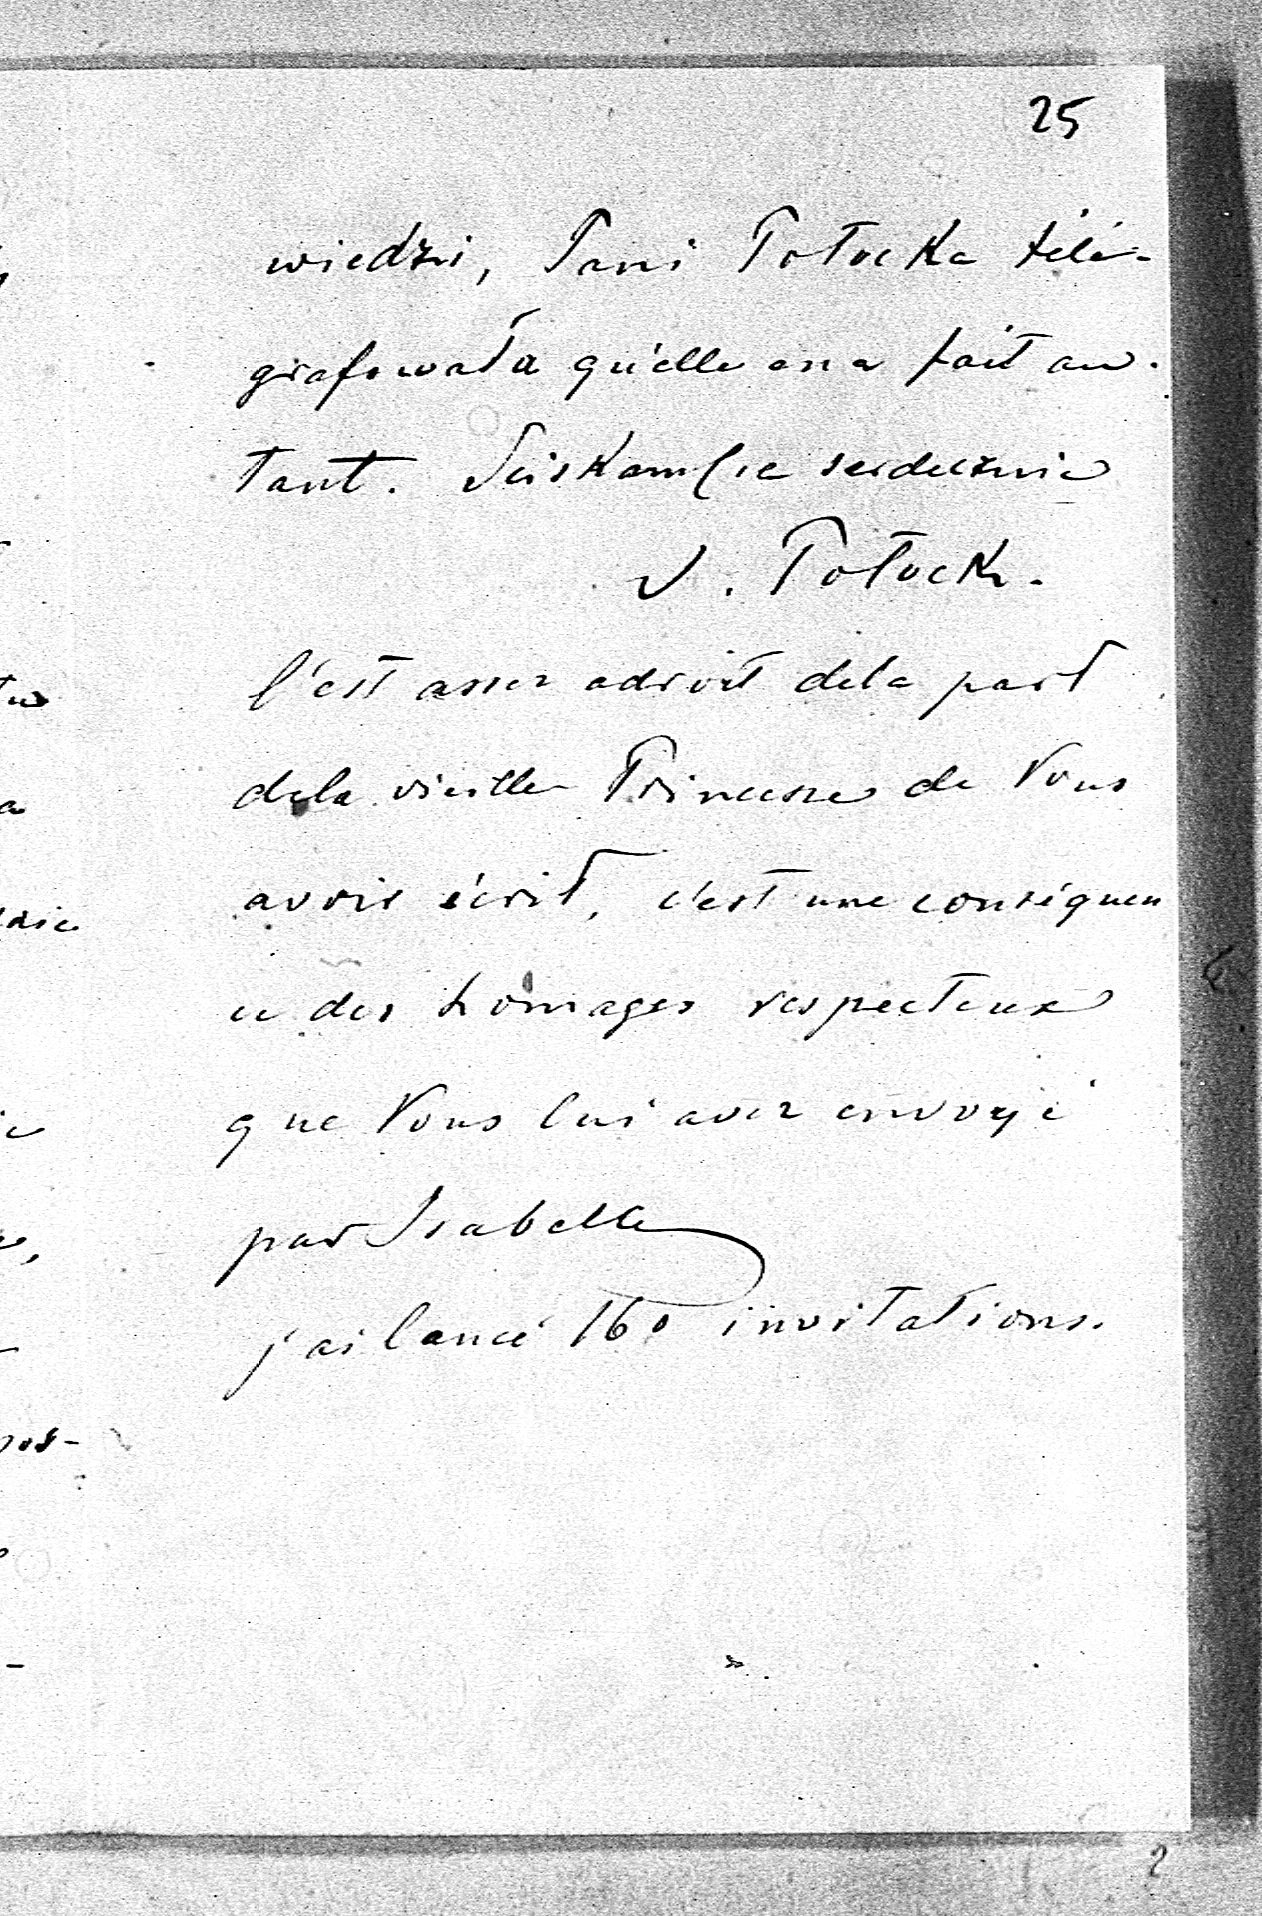 25
wiedzi, Pani Potocka télé-
grafowała qu'elle en a fait au-
tant. Sciskam cie serdecznie
J. Potock.
C'est assez adroit dela part
dela vieille Princesse de Vous
avoir écrit, c'est une conséquen
ce des homages respecteux
que Vous lui avez envoyé
par Isabelle
j'ai lancé 160 invitations.
2